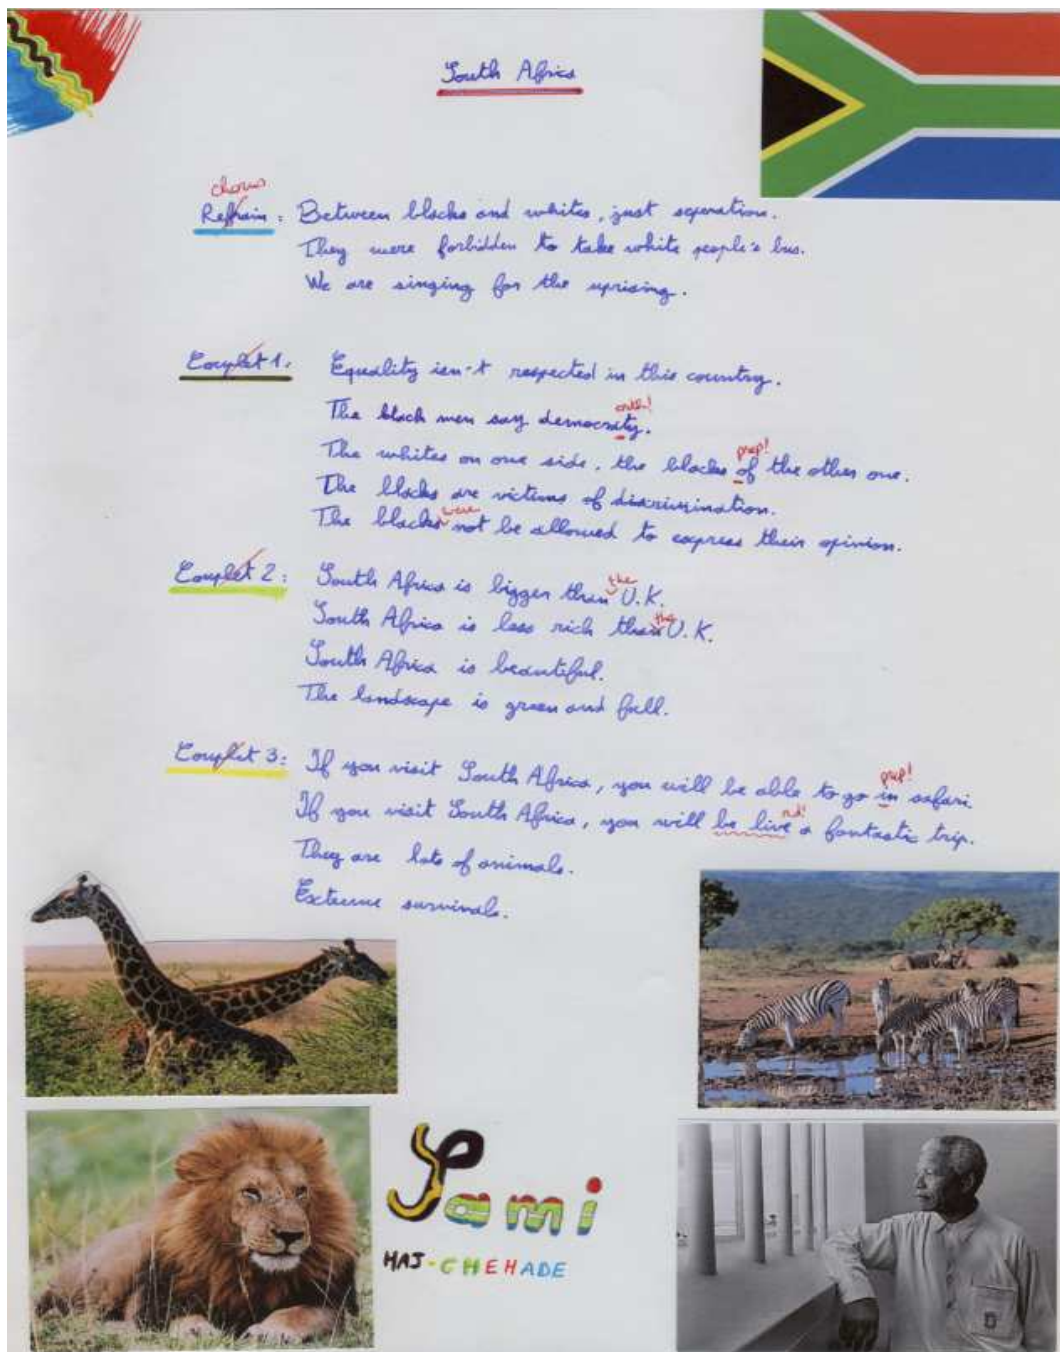 South Africa
chorus
Refrain : Between blacks and whites, just separation.
They were forbidden to take white people's bus.
We are singing for the uprising.
Couplet 1. Equality isn't respected in this country.
orth!
The black men say democraty.
prep!
The whites on one side, the blacks of the other one.
The blacks are victims of discrimination.
were
The blacks not be allowed to express their opinion.
Couplet 2 : South Africa is bigger than the U.K.
South Africa is less rich than the U.K.
South Africa is beautiful.
The landscape is green and full.
prep!
Couplet 3 : If you visit South Africa, you will be able to go in safari
If you visit South Africa, you will be live a fantastic trip.
They are lots of animals.
Extreme survivals.
Sami
HAJ-CHEHADE